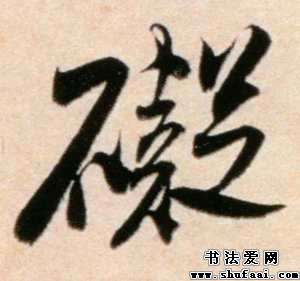 礙
书法爱网
www.shufaai.com